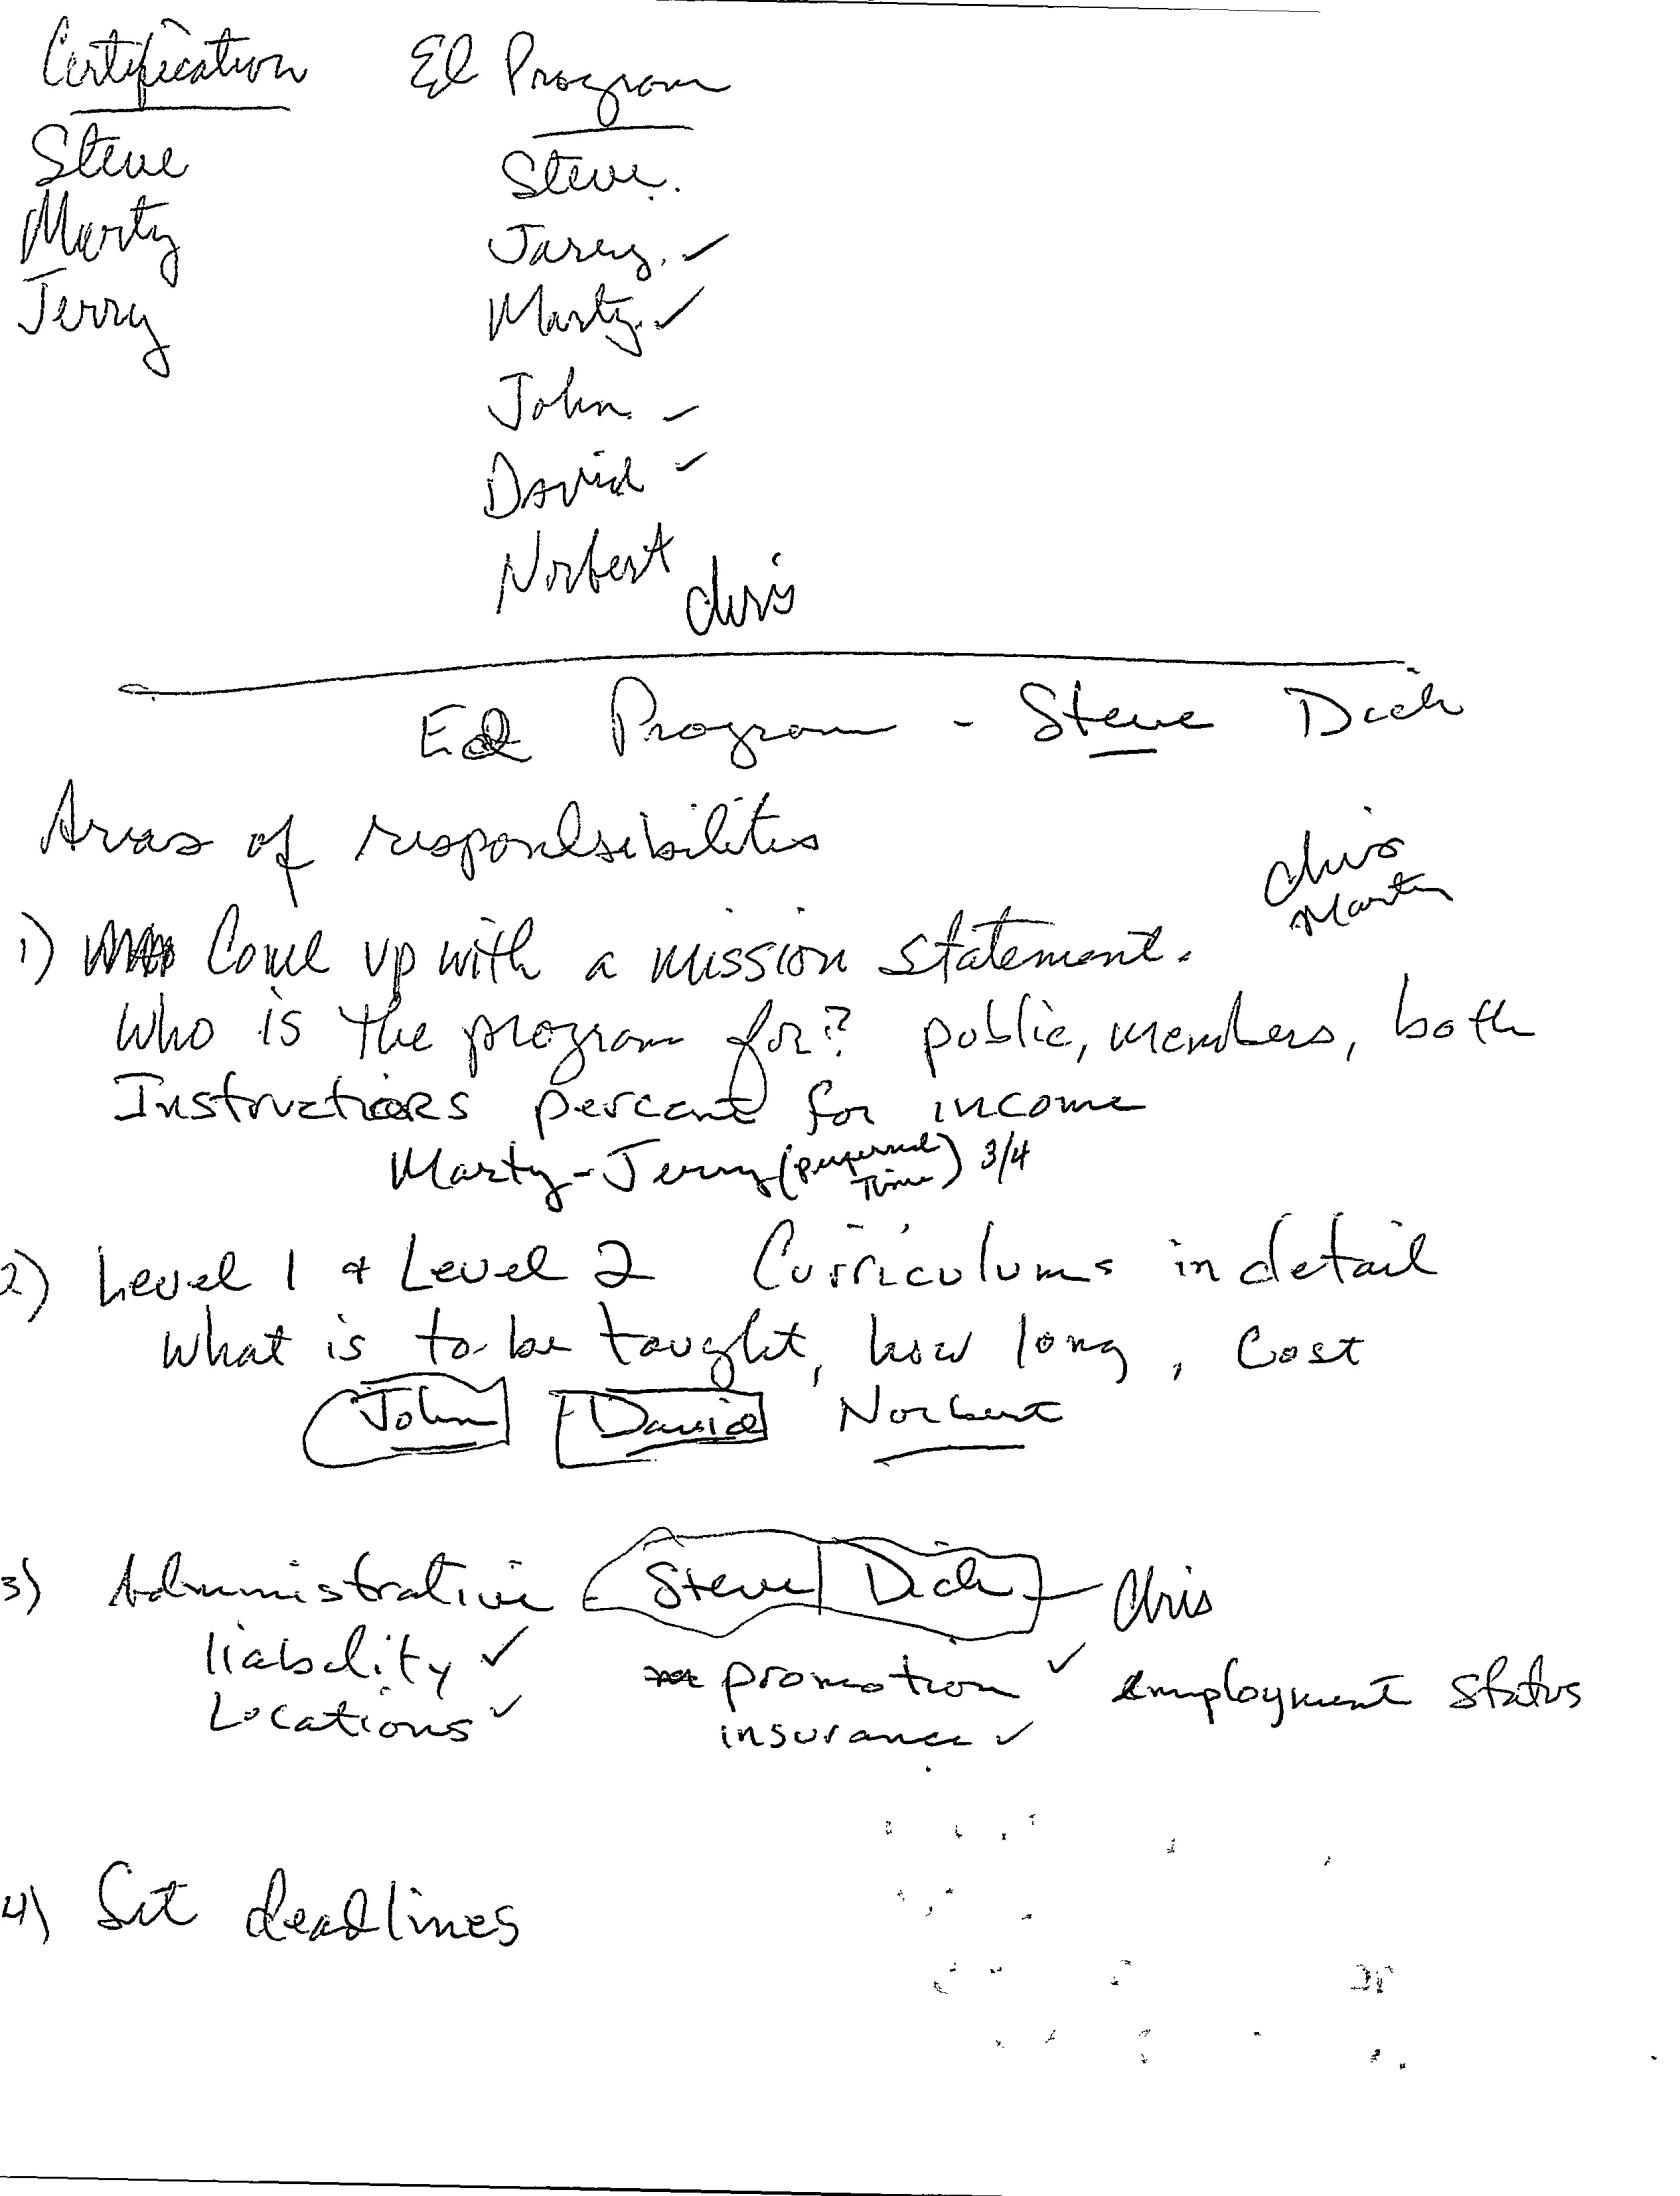 Certification Ed Program
Steve Steve.
Marty Jerry. ✓
Jerry Marty. ✓
John. ✓
David ✓
Norbert
Chris
Ed Program - Steve Dick
Areas of responsibilities
Chris
Marty
1) Come up with a mission statement.
Who is the program for? public, members, both
Instructors percent for income
Marty - Jerry (preferred Time) 3/4
2) Level 1 + Level 2 Curriculums in detail
What is to be taught, how long, Cost
John David Norbert
3) Administrative Steve Dick - Chris
liability ✓ promotion ✓ employment status
Locations ✓ insurance ✓
4) Set deadlines